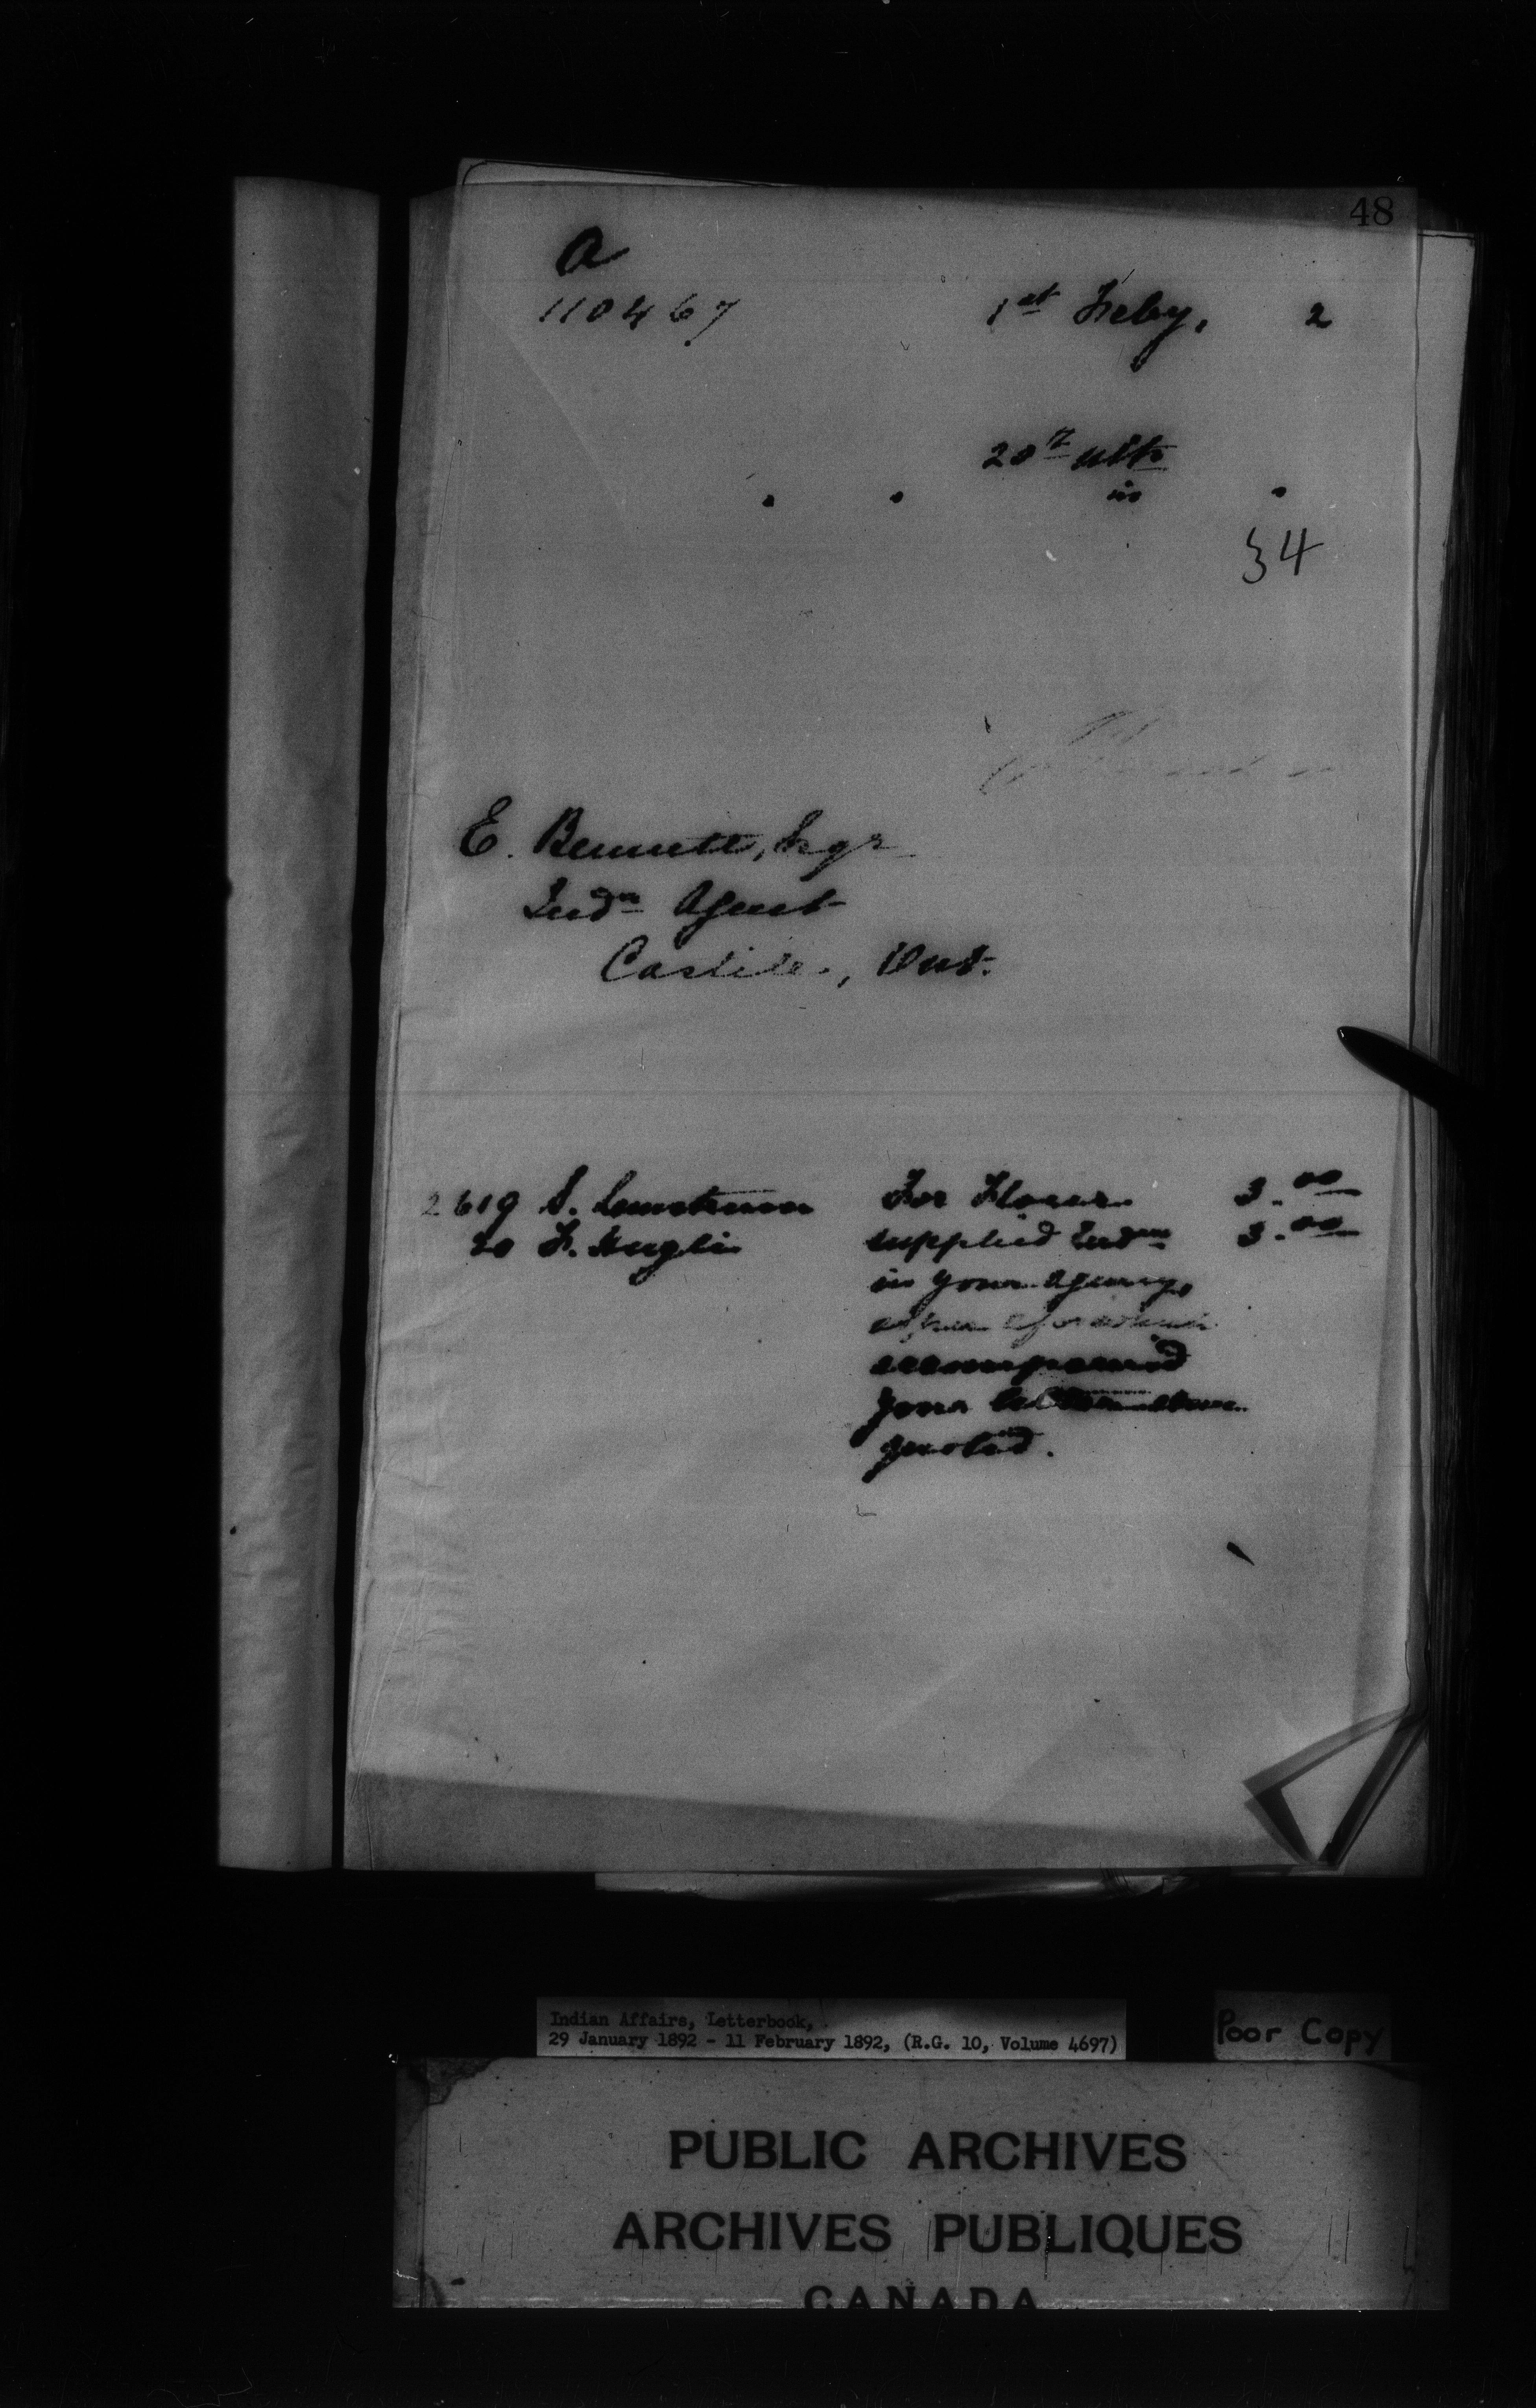 48
A
110467 1st Feby, 2
20th ulto
in
34
E. Bennett, Esqr
Indn Agent
Castile, Ont.
2619 S. For Flour 3.00
20 F. supplied Indns 3.00
in your agency,
accompanied
your
quoted.
Indian Affairs, Letterbook,
29 January 1892 - 11 February 1892, (R.G. 10, Volume 4697)
Poor Copy
PUBLIC ARCHIVES
ARCHIVES PUBLIQUES
CANADA